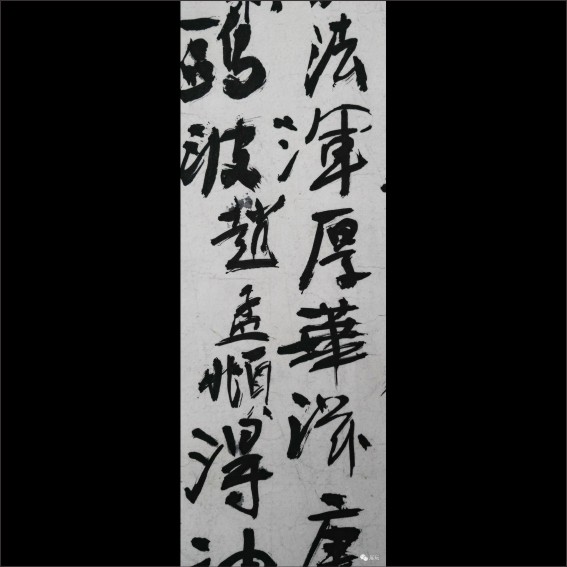 法渾厚華滋唐
鷗波趙孟頫得